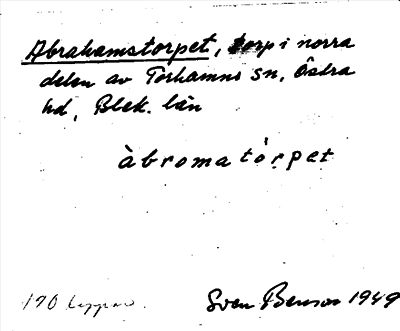 Abrahamstorpet, torp i norra
delen av Torhamns sn, Östra
hd, Blek. län
àbromatòrpet
170
Sven Benson 1949